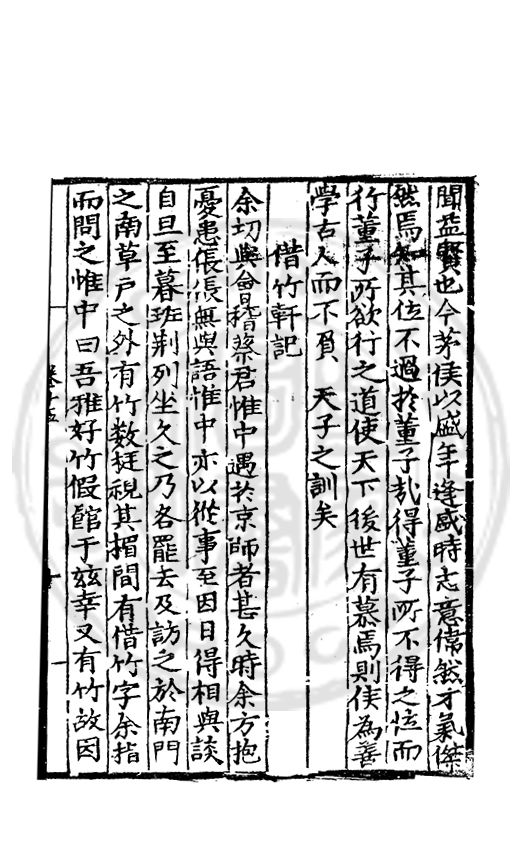 聞益賢也今茅侯以盛年逢盛時志意偉然才氣傑
然焉知其位不過於董子哉得董子所不得之位而
行董子所欲行之道使天下後世有慕焉則侯為善
學古人而不負　天子之訓矣
借竹軒記
余切與會稽蔡君惟中遇於京師者甚久時余方抱
憂患倀倀無與語惟中亦以從事至因日得相與談
自旦至暮班荆列坐久之乃各罷去及訪之於南門
之南草戶之外有竹數挺視其楣間有借竹字余指
而問之惟中曰吾雅好竹假館于兹幸又有竹故因
卷十五